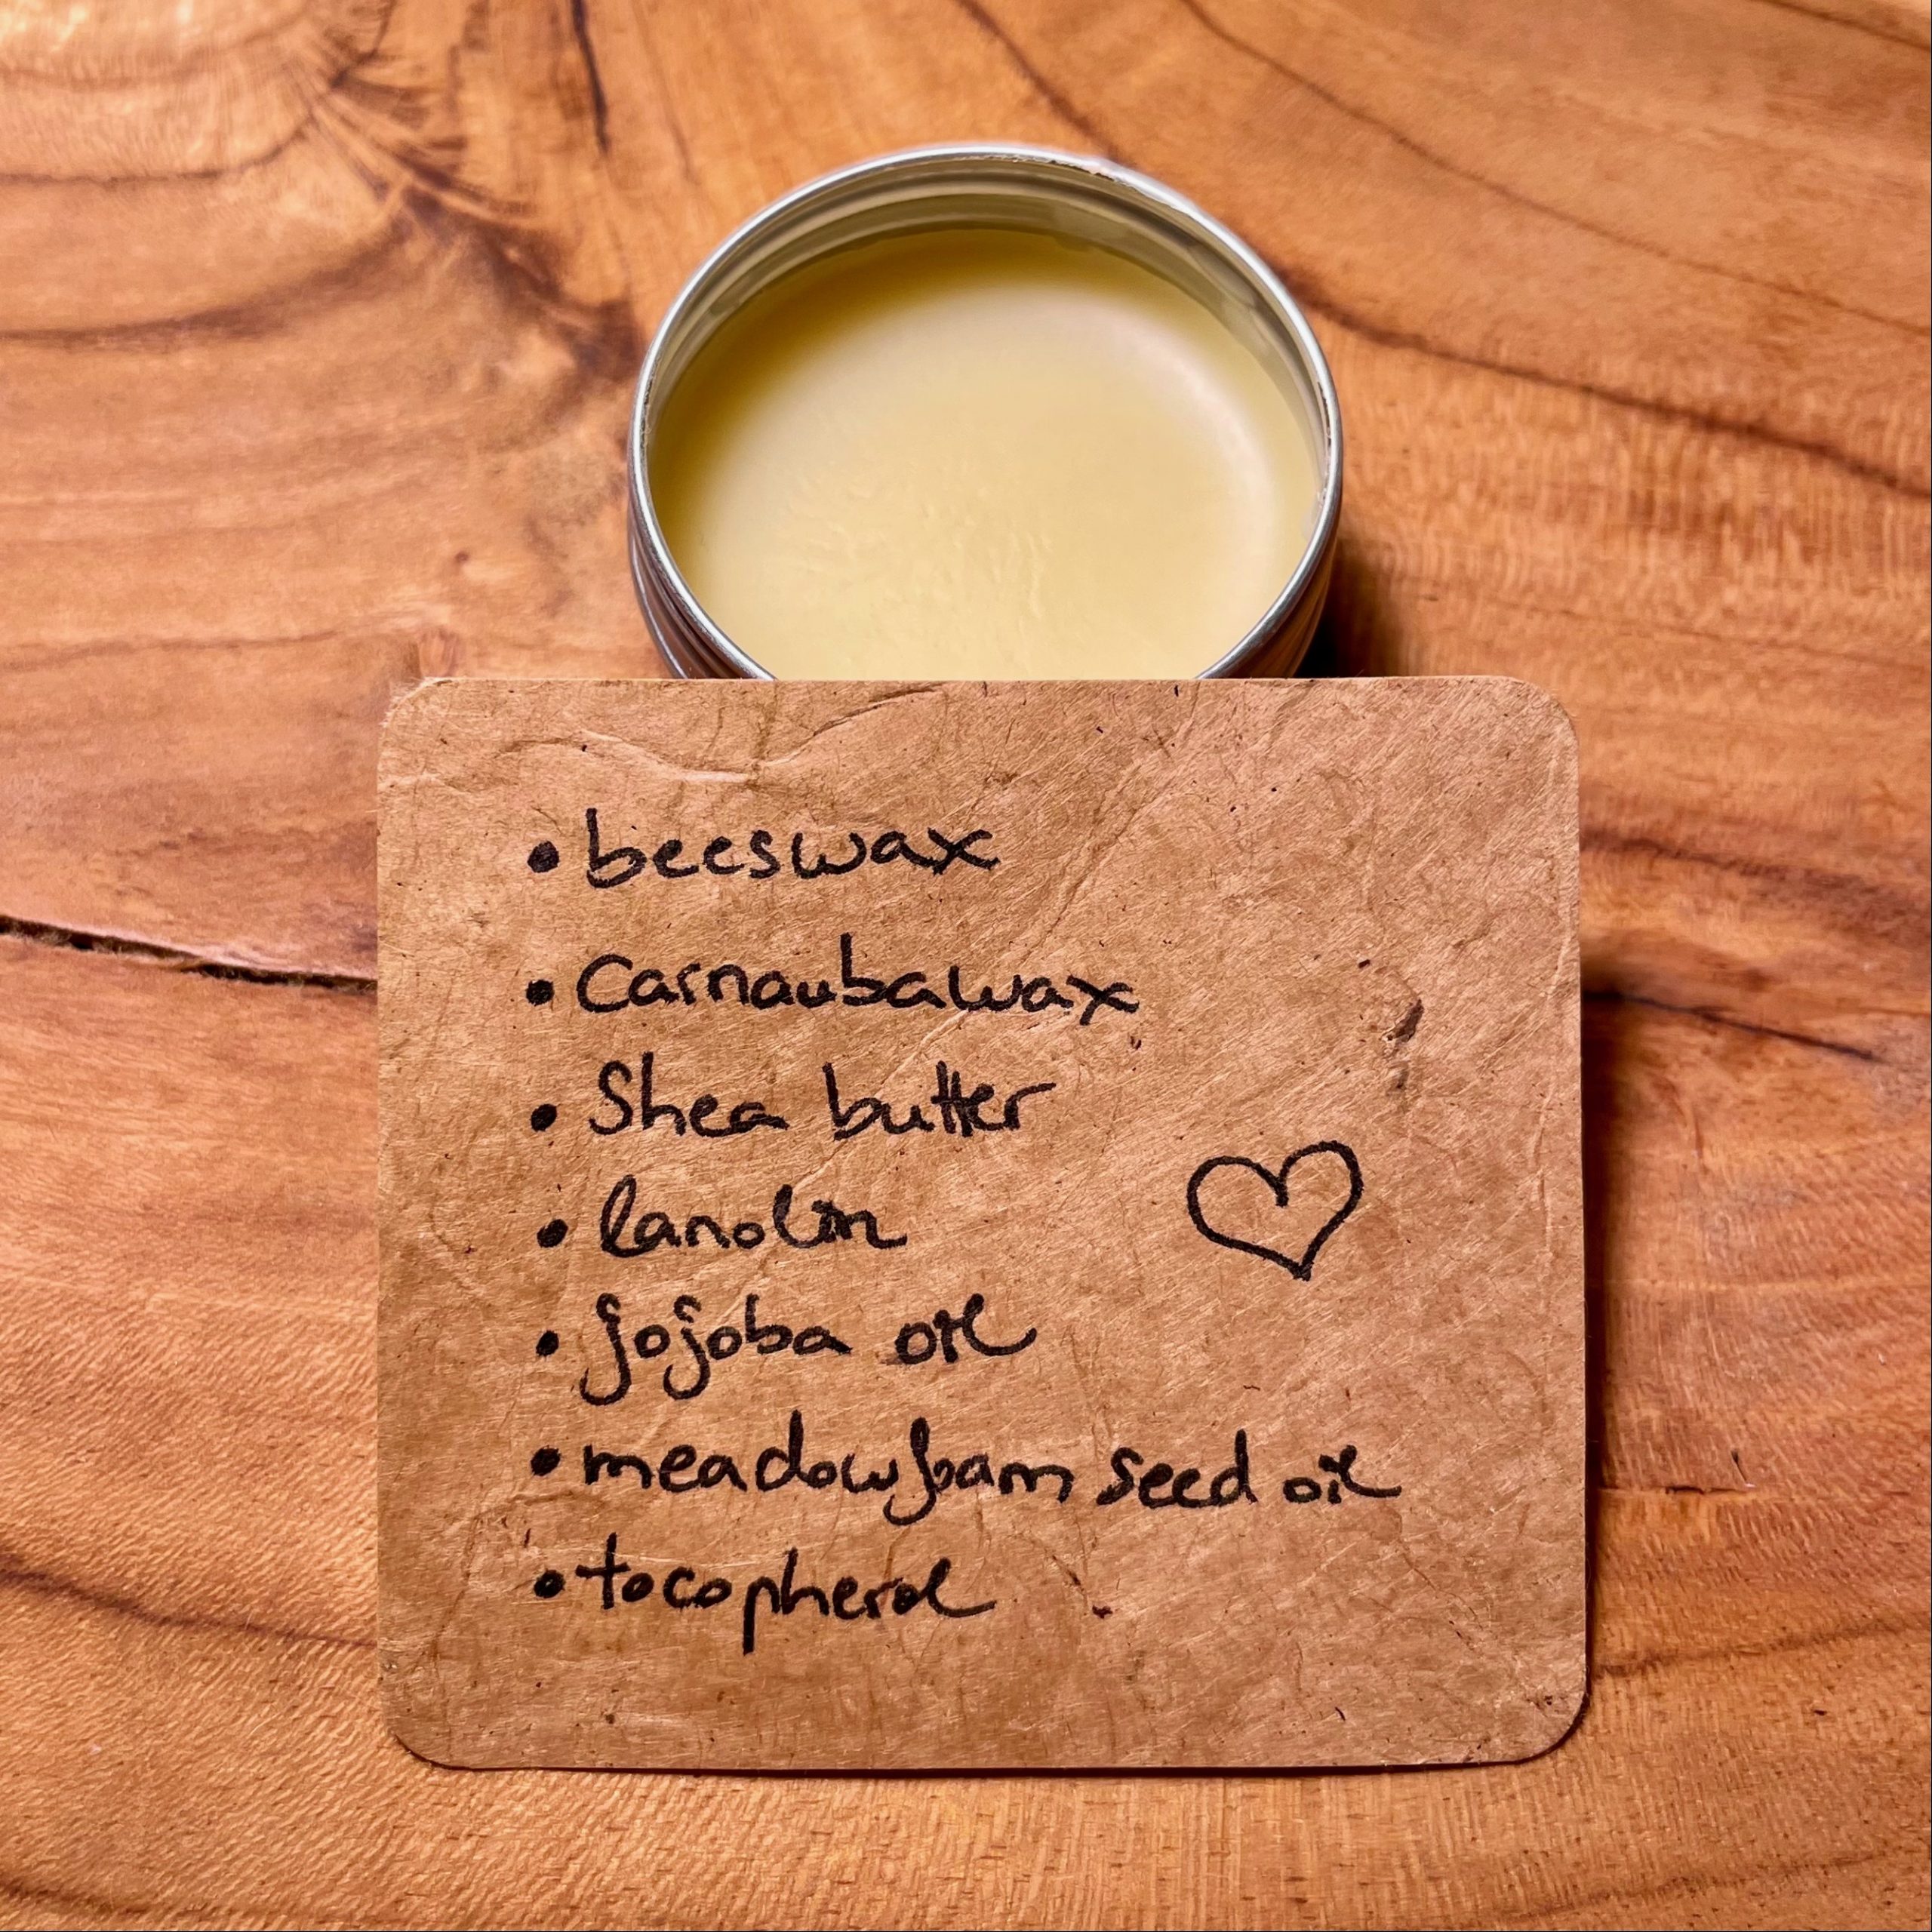 • beeswax
• Carnaubawax
• Shea butter
• lanolin
• jojoba oil
• meadowfoam seed oil
• tocopherol